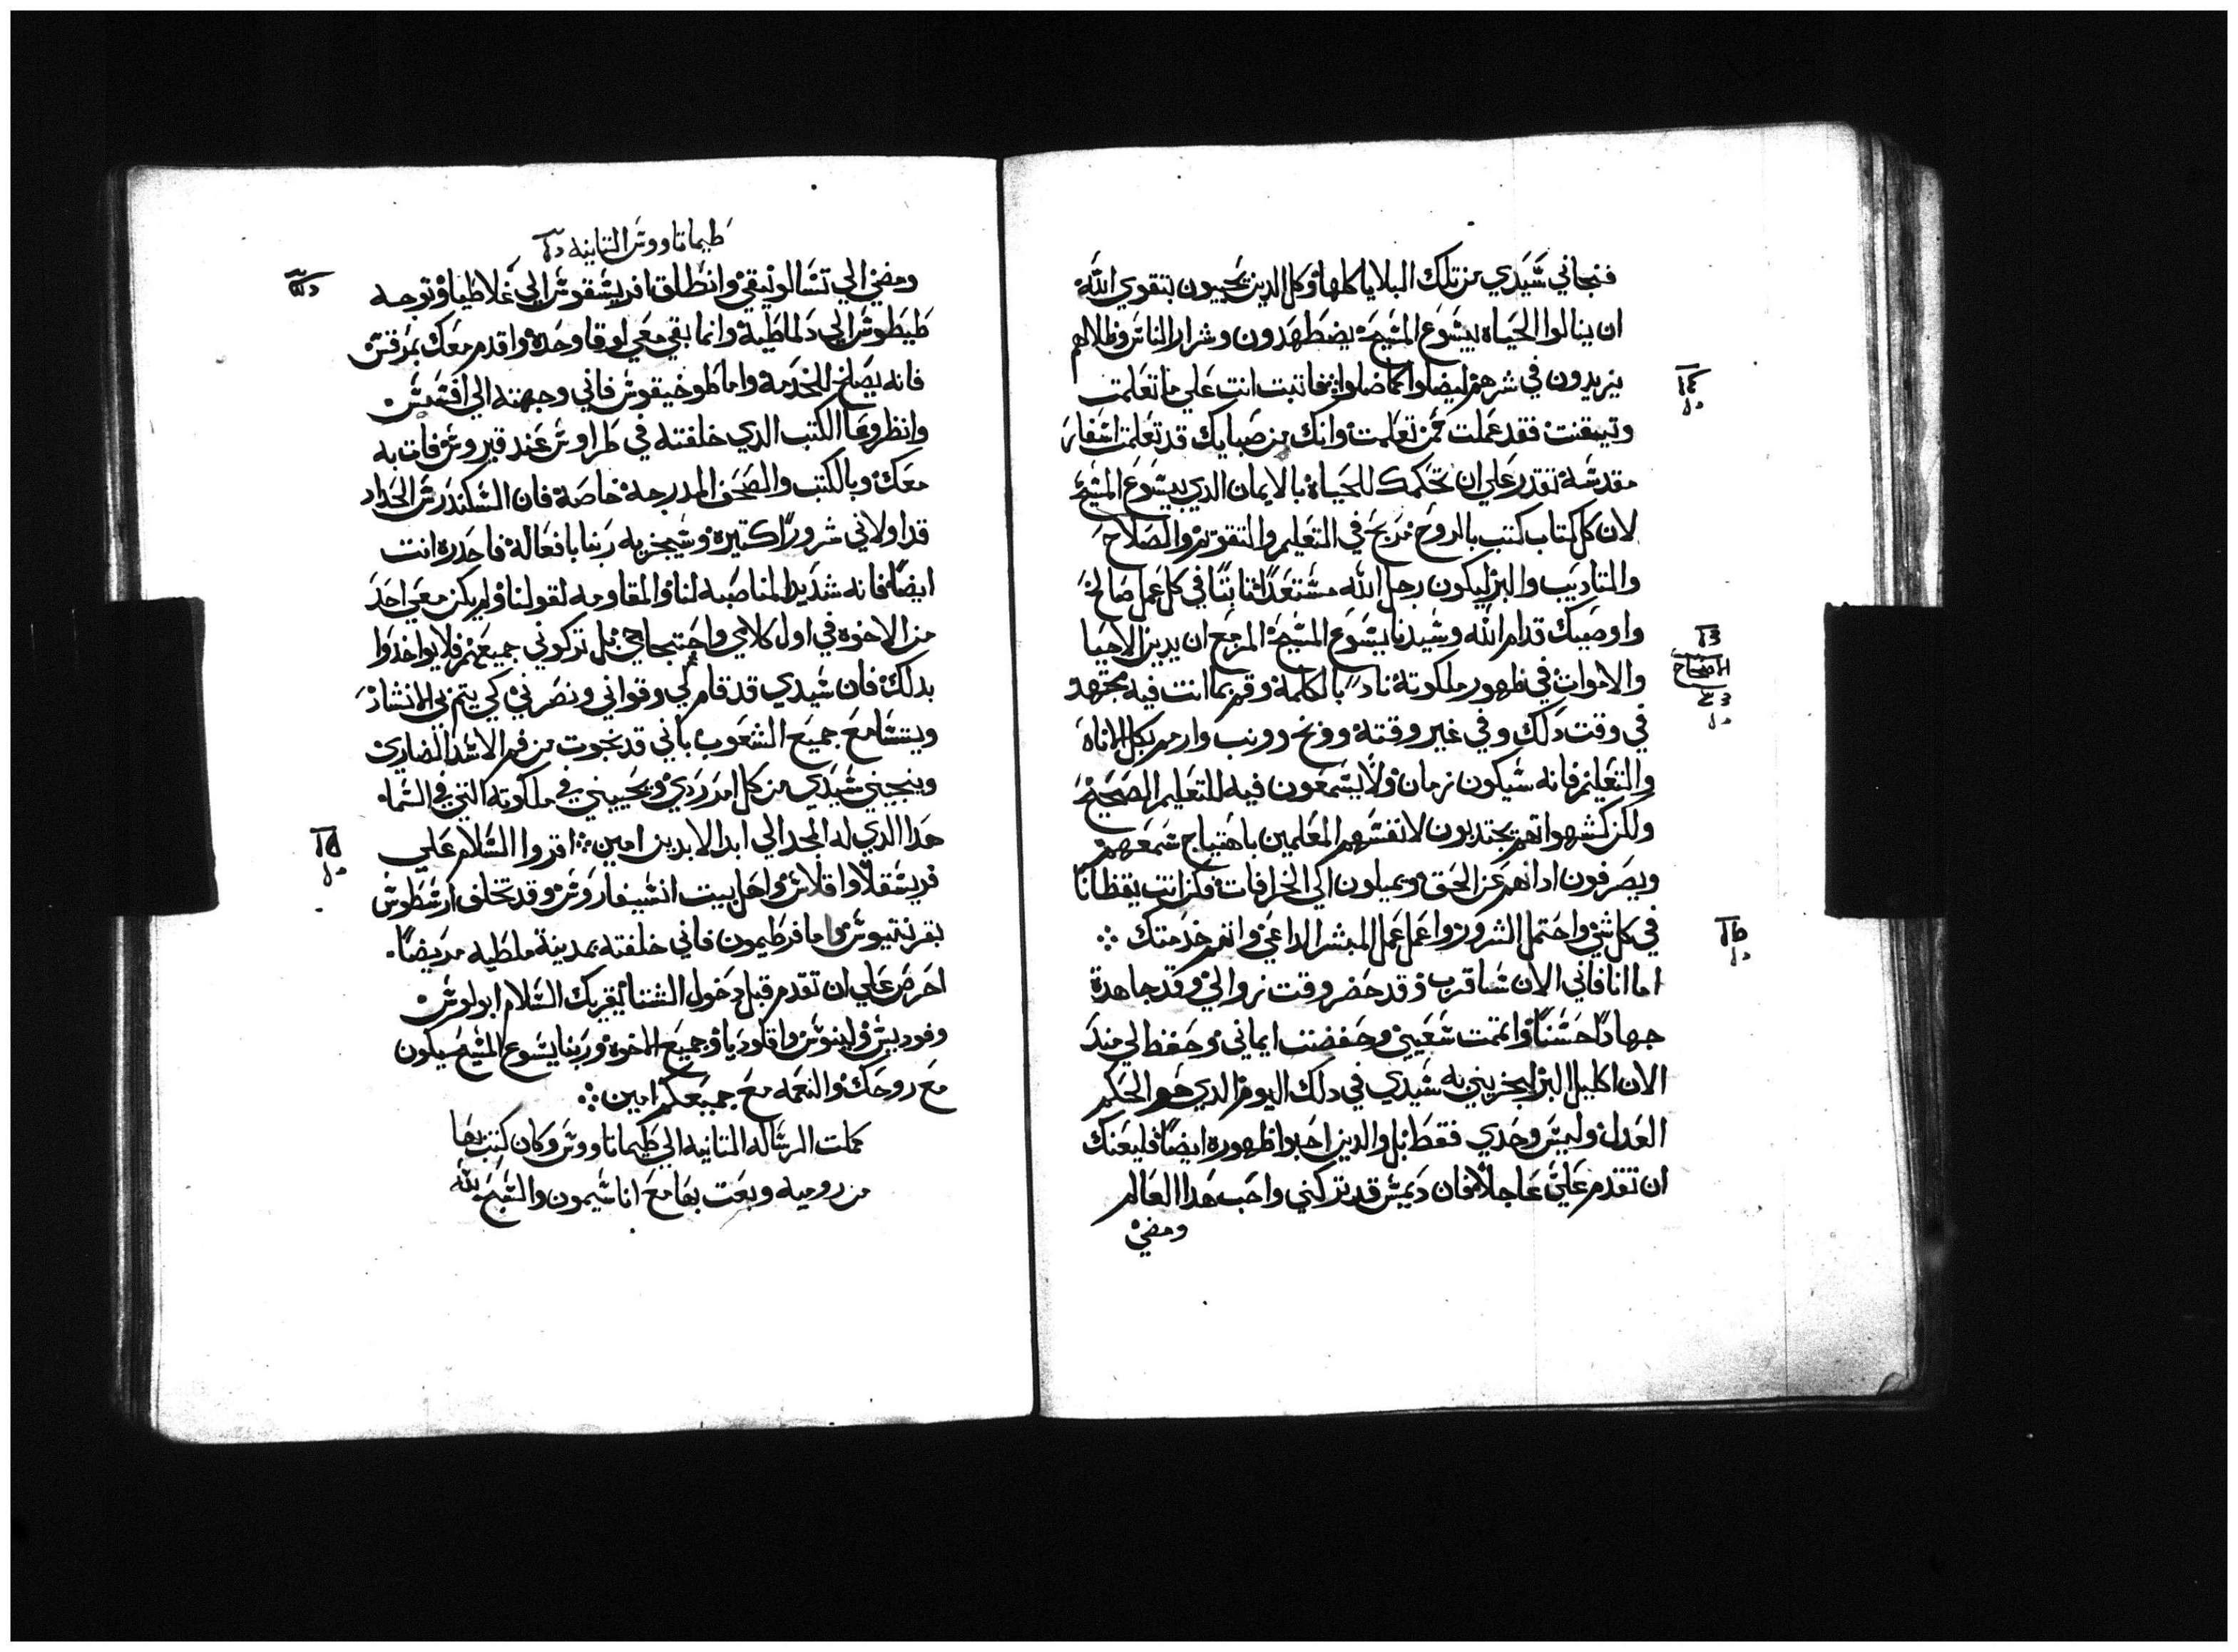 فنجاني شيدي من تلك البلايا كلها وكل الدين يحييون بتقوي الله
ان ينالوا الحياه بيشوع المشيح يضطهدون وشرار الناس وظلالهم
يزيدون في شرهم ليضلوا كما ضلوا فاتبت انت علي ما تعلمت
وتيقنت فقد عملت ممن تعلمت وانك من صبايك قد تعلمت اشفار
مقدشة تقدر علي ان تحكمك للحياة بالايمان الدي بيشوع المشيح
لان كل كتاب كتب بالروح مربح في التعليم والتقويم والصلاح
والتاديب والبر ليكون رجل الله مشتعدا تابتا في كل عمل صالح
واوصيك قدام الله وشيدنا يشوع المشيح المزمع ان يدين الاحيا
الاصحاح
والاموات في ظهور ملكوته ناد بالكلمة وقم بما انت فيه مجتهد
في وقت دلك وفي غير وقته ووبخ وونب وارم بكل الاناه
والتعليم فانه شيكون زمان ولا يسمعون فيه للتعليم الصحيح
ولكن كشهواتهم يجتدبون لانفسهم المعلمين باهتياج شمعهم
ويصرفون ادانهم عن الحق ويميلون الي الخرافات فكن انت يقظانا
في كل شي واحتمل الشرور واعمل عمل المبشر الداعي واتم خدمتك
اما انا فاني الان شاقرب وقد حضر وقت زوالي وقد جاهدة
جهادا حشنا واتممت شعيي وحفضت ايماني وحفظ لي مند
الان اكليل البر ليجزيني به شيدي في دلك اليوم الدي هو الحكم
العدل وليش وحدي فقط بل والدين احبوا ظهوره ايضا فليعنك
ان تقدم علي عاجلا فان ديمش قد تركني واحب هدا العالم
ومضي
طيماتاووش التانيه
ومضي الي تشالونيقي وانطلق افريشقوش الي غلاطيا وتوجه
طيطوش الي دلماطية وانما بقي معي لوقا وحده واقدم معك بمرقش
فانه يصلح للخدمة واما طوخيقوش فاني وجهته الي افشش
وانظر وعا الكتب الدي خلفته في طراوش عند قيروش فات به
معك وبالكتب والصحف المدرجة خاصة فان الشكندرش الحداد
قد اولاني شرورا كتيرة وشيجزيه ربنا بافعاله فاحدره انت
ايضا فانه شديد المناصبه لنا والمقاومه لقولنا ولم يكن معي احد
من الاخوة في اول كلامي واحتجاجي بل تركوني جميعهم فلا يواخدوا
بدلك فان شيدي قد قام لي وقواني ونصرني كي يتم بي الانشاد
ويتشامع جميع الشعوب باني قد نجوت من فم الاشد الضاري
وينجيني شيدي من كل امر ردي ويحييني في ملكوته التي في الشما
هدا الدي له المجد الي ابد الابدين امين اقروا الشلام علي
فريشقلا واقلاش واهل بيت انشيفاروش وقد تخلف ارشطوش
بقرنتيوش واما فرطيمون فاني خلفته بمدينة ملطيه مريضا
احرص علي ان تقدم قبل دخول الشتا يقريك الشلام ابولوش
وفوديش ولينوش واقلوديا وجميع الاخوة وربنا يشوع المشيح سيكون
مع روحك والنعمه مع جميعكم امين
كملت الرشاله التانيه الي طيماتاووش وكان كتب بها
من روميه وبعت بها مع اناشيمون والشبح لله